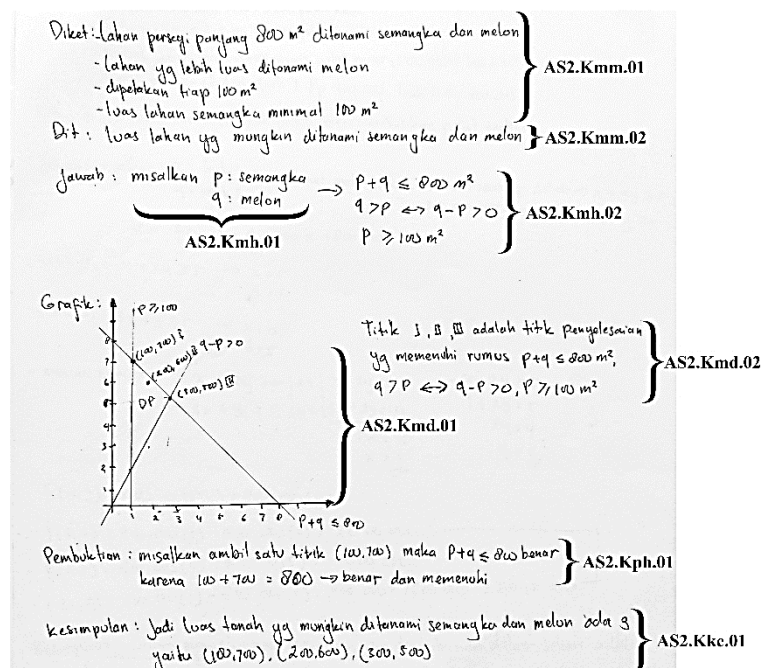 Diket: Lahan persegi panjang 800 m² ditanami semangka dan melon
- Lahan yg lebih luas ditanami melon
- dipetakan tiap 100 m²
- luas lahan semangka minimal 100 m²
AS2.Kmm.01
Dit: luas lahan yg mungkin ditanami semangka dan melon
AS2.Kmm.02
Jawab: misalkan p: semangka → p+q ≤ 800 m²
q: melon q>p ↔ q-p>0
p ≥ 100 m²
AS2.Kmh.01
AS2.Kmh.02
Grafik:
p ≥ 100
(100,700) I
(200,600) II q-p>0
DP (300,500) III
8
7
6
5
4
3
2
1
1 2 3 4 5 6 7 8 p+q ≤ 800
AS2.Kmd.01
Titik I, II, III adalah titik penyelesaian
yg memenuhi rumus p+q ≤ 800 m²,
q>p ↔ q-p>0, p ≥ 100 m²
AS2.Kmd.02
Pembuktian: misalkan ambil satu titik (100,700) maka p+q ≤ 800 benar
karena 100+700 = 800 → benar dan memenuhi
AS2.Kph.01
Kesimpulan: Jadi luas tanah yg mungkin ditanami semangka dan melon ada 3
yaitu (100,700), (200,600), (300,500)
AS2.Kkc.01